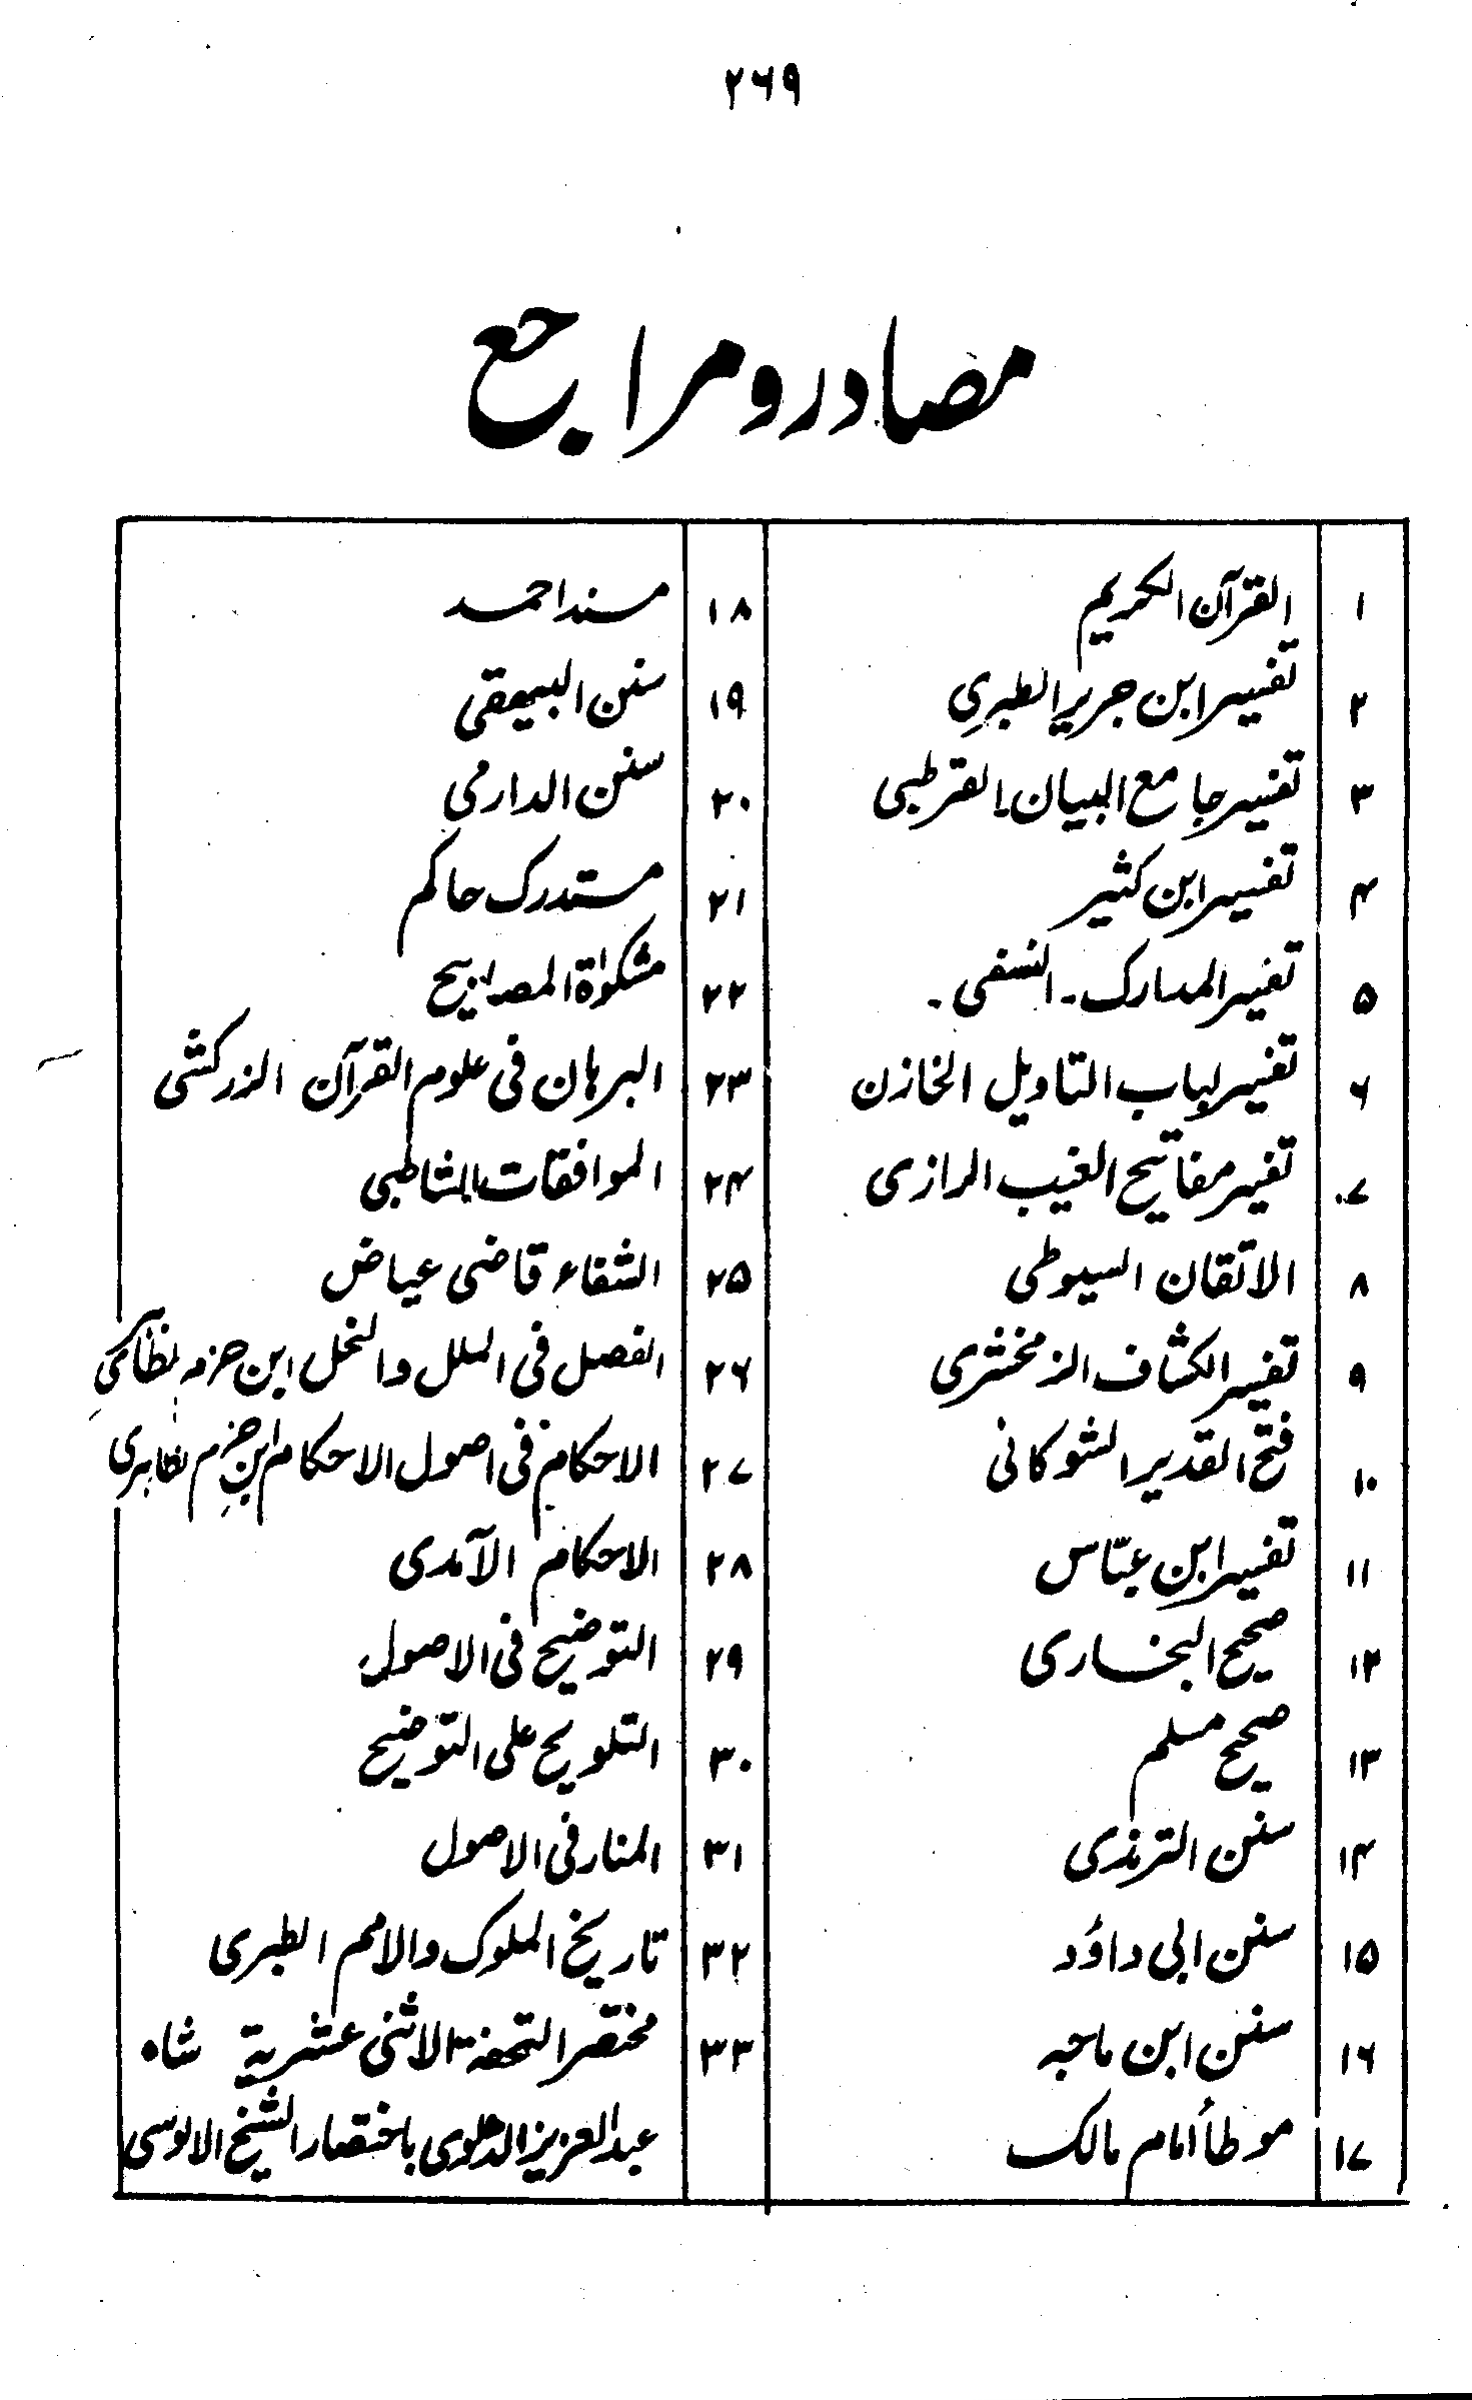 ۲۶۹
مصادر و مراجع
۱ القرآن الکریم
۲ تفسیر ابن جریر الطبری
۳ تفسیر جامع البیان۔القرطبی
۴ تفسیر ابن کثیر
۵ تفسیر المدارک۔ النسفی۔
۶ تفسیر لباب التاویل الخازن
۷ تفسیر مفاتیح الغیب الرازی
۸ الاتقان السیوطی
۹ تفسیر الکشاف الزمخشری
۱۰ فتح القدیر الشوکانی
۱۱ تفسیر ابن عبّاس
۱۲ صحیح البخاری
۱۳ صحیح مسلم
۱۴ سنن الترمذی
۱۵ سنن ابی داؤد
۱۶ سنن ابن ماجہ
۱۷ موطأ امام مالک
۱۸ مسند احمد
۱۹ سنن البیہقی
۲۰ سنن الدارمی
۲۱ مستدرک حاکم
۲۲ مشکوٰة المصابیح
۲۳ البرہان فی علوم القرآن الزرکشی
۲۴ الموافقات الشاطبی
۲۵ الشفاء قاضی عیاض
۲۶ الفصل فی الملل والنحل ابن حزم
۲۷ الاحکام فی اصول الاحکام ابن حزم ظاہری
۲۸ الاحکام الآمدی
۲۹ التوضیح فی الاصول
۳۰ التلویح علی التوضیح
۳۱ المنار فی الاصول
۳۲ تاریخ الملوک والامم الطبری
۳۳ مختصر التحفة الاثنی عشریة شاہ
عبدالعزیز الدہلوی باختصار الشیخ الالوسی